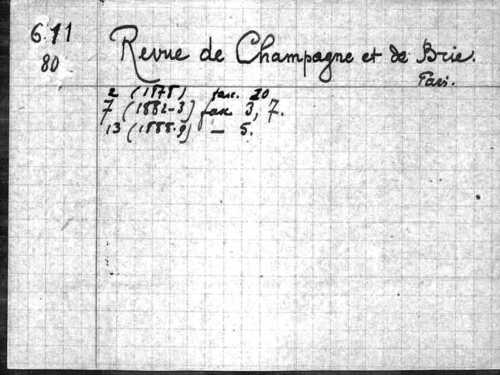 6.11
80
Revue de Champagne et de Brie.
Pari.
2 (1878) fasc. 20
7 (1882-3) fasc 3, 7.
13 (1888-9) — 5.